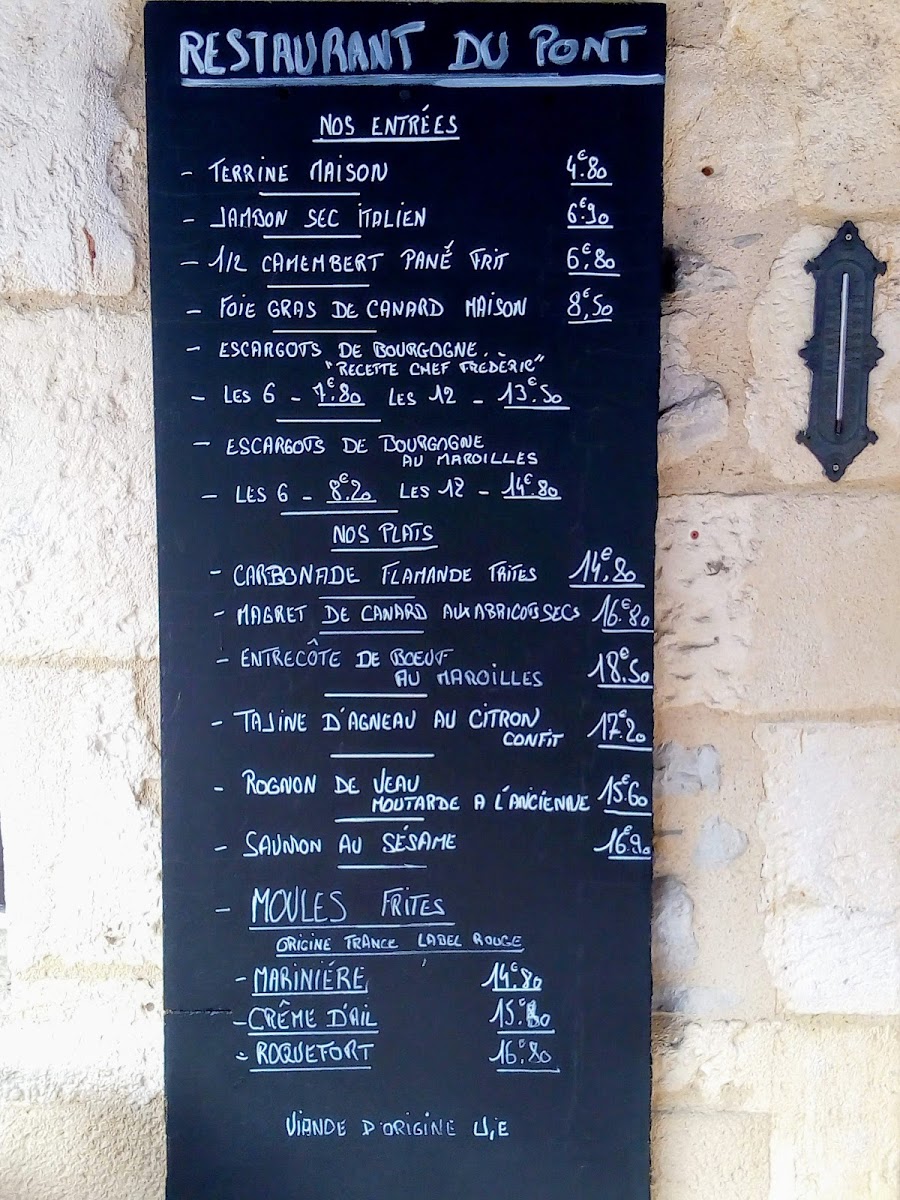 RESTAURANT DU PONT
NOS ENTRÉES
- TERRINE MAISON 4€.80
- JAMBON SEC ITALIEN 6€.90
- 1/2 CAMEMBERT PANÉ FRIT 6€.80
- FOIE GRAS DE CANARD MAISON 8€,50
- ESCARGOTS DE BOURGOGNE.
"RECETTE CHEF FRÉDÈRIC"
- LES 6 - 7€.80 LES 12 - 13€.50
- ESCARGOTS DE BOURGOGNE
AU MAROILLES
- LES 6 - 8€.20 LES 12 - 14€.80
NOS PLATS
- CARBONADE FLAMANDE FRITES 14€.80
- MAGRET DE CANARD AUX ABRICOTS SECS 16€.80
- ENTRECÔTE DE BOEUF
AU MAROILLES 18€.50
- TAJINE D'AGNEAU AU CITRON
CONFIT 17€.20
- ROGNON DE VEAU
MOUTARDE A L'ANCIENNE 15€.60
- SAUMON AU SÉSAME 16€.90
- MOULES FRITES
ORIGINE FRANCE LABEL ROUGE
- MARINIÉRE 14€.80
- CRÊME D'AIL
- ROQUEFORT 16€.80
VIANDE D'ORIGINE U,E